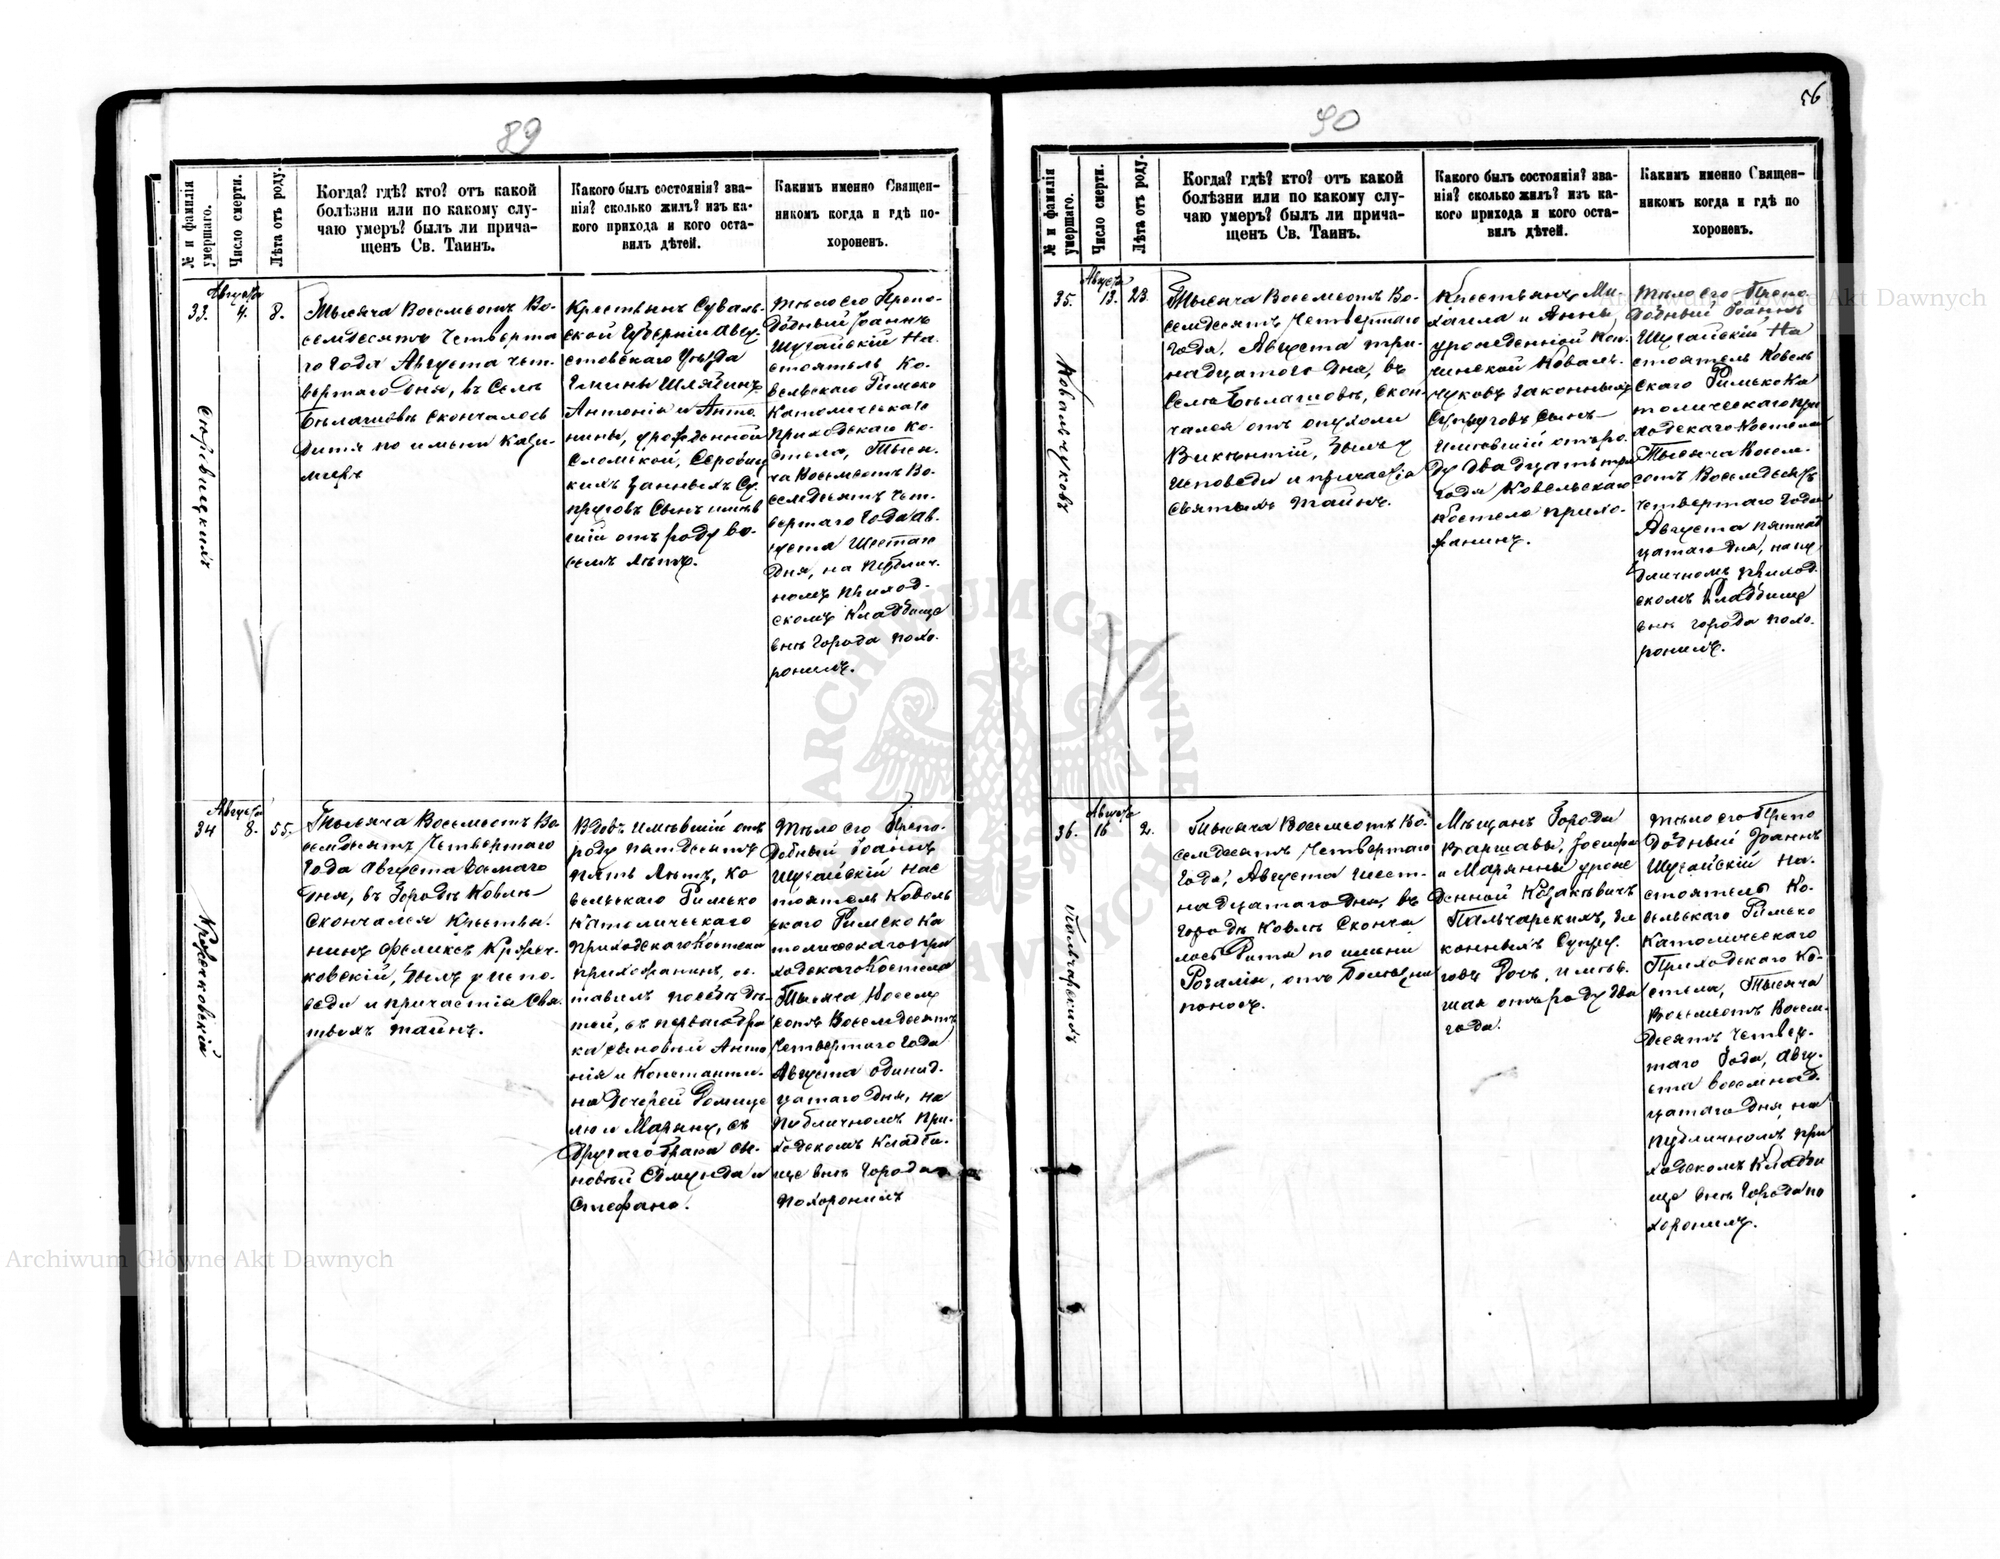 89
№ и фамилія умершаго.
Число смерти.
Лѣта отъ роду.
Когда? гдѣ? кто? отъ какой
болѣзни или по какому слу-
чаю умеръ? былъ ли прича-
щенъ Св. Таинъ.
Какого былъ состоянія? зва-
нія? сколько жилъ? изъ ка-
кого прихода и кого оста-
вилъ дѣтей.
Какимъ именно Священ-
никомъ когда и гдѣ по-
хороненъ.
33.
Августа
4.
8.
Тысяча Восемьсотъ Во-
семдесятъ Четверта
го Года Августа Чет-
вертаго дня, въ Селѣ
Бѣлашовѣ скончалось
Дитя по имени Кази-
миръ
Крестьянъ Суваль-
ской Губерніи Авгу
стовскаго Уѣзда
Гмины
Антонія и Анто
нины, урожденной
кихъ законныхъ Су
пруговъ Сынъ имѣв
шій отъ роду во-
семь лѣтъ.
Тѣло его Препо-
добный Іоаннъ
Шугайскій На-
стоятель Ко-
вельскаго Римско
Католическаго
Приходскаго Ко-
стела, Тыся-
ча Восемьсотъ Во-
семдесятъ Чет-
вертаго Года Ав-
густа Шестаго
Дня, на Публич-
номъ Приход-
скомъ Кладбище
внѣ Города похо-
ронилъ.
34
Августа
8.
55.
Тысяча Восемьсотъ Во
семдесятъ Четвертаго
Года Августа Осмаго
Дня, въ Городѣ Ковлѣ
Скончался Крестья-
нинъ Феликсъ
ковскій, былъ у Испо-
веди и причастія Свя-
тыхъ таинъ.
Вдовъ имѣвшій отъ
роду пятдесятъ
пять Лѣтъ, Ко
вельскаго Римско
Католическаго
приходскаго Костела
прихожанинъ, ос-
тавилъ послѣ дѣ-
тей, съ перваго бра
ка сыновей Анто
нія и Константи-
на Дочерей Домице
лю и Марыну, съ
Другаго брака сы-
новей Едмунда и
Стефана.
Тѣло его Препо-
добный Іоаннъ
Шугайскій Нас
тоятель Ковель
скаго Римско Ка
толическаго При
ходскаго Костела
Тысяча Восемь
сотъ Восемдесятъ
Четвертаго Года
Августа одинад-
цатаго Дня, на
Публичномъ При-
ходскомъ Кладби-
ще внѣ Города
похоронилъ
56
90
№ и фамилія умершаго.
Число смерти.
Лѣта отъ роду.
Когда? гдѣ? кто? отъ какой
болѣзни или по какому слу-
чаю умеръ? былъ ли прича-
щенъ Св. Таинъ.
Какого былъ состоянія? зва-
нія? сколько жилъ? изъ ка-
кого прихода и кого оста-
вилъ дѣтей.
Какимъ именно Священ-
никомъ когда и гдѣ по
хороненъ.
35.
Ковальчуковъ
Августа
13.
23.
Тысяча Восемьсотъ Во-
семдесятъ Четвертаго
Года, Августа три-
надцатаго Дня, въ
Селѣ Бѣлашовѣ, Скон-
чался отъ опухоли
Викентій, былъ у
Исповеди и причастія
Святыхъ Таинъ.
Крестьянъ Ми-
хаила и Анны
урожденной
Коваль-
чуковъ Законныхъ
Супруговъ Сынъ
Имѣвшій отъ ро-
ду двадцать три
года Ковельскаго
Костела прихо-
жанинъ.
Тѣло его Препо-
добный Іоаннъ
Шугайскій На
стоятель Ковель
скаго Римско Ка
толическаго При
ходскаго Костела
Тысяча Восем-
сотъ Восемдесятъ
Четвертаго Года
Августа пятнад
цатаго Дня, на пу
бличномъ приход
скомъ Кладбище
внѣ Города похо-
ронилъ.
36.
Пальчарскихъ
Августа
16
2.
Тысяча Восемьсотъ Во-
семдесятъ Четвертаго
Года, Августа шест-
надцатаго Дня, въ
Городѣ Ковлѣ Сконча
лось Дитя по имени
Розалія, отъ
поносу.
Мѣщанъ Города
Варшавы, Іосифа
и Марянны урож
денной Козакевичъ
Пальчарскихъ, За
конныхъ Супру-
говъ Дочь, имѣв-
шая отъ роду два
года.
Тѣло его Препо
добный Іоаннъ
Шугайскій На-
стоятель Ко-
вельскаго Римско
Католическаго
Приходскаго Ко-
стела, Тысяча
Восемьсотъ Восем-
десятъ Четвер-
таго Года, Авгу-
ста восемнад-
цатаго Дня, на
публичномъ при
ходскомъ Кладби
ще внѣ Города по
хоронилъ.
Archiwum Główne Akt Dawnych
Archiwum Główne Akt Dawnych
ARCHIWUM GŁÓWNE AKT DAWNYCH